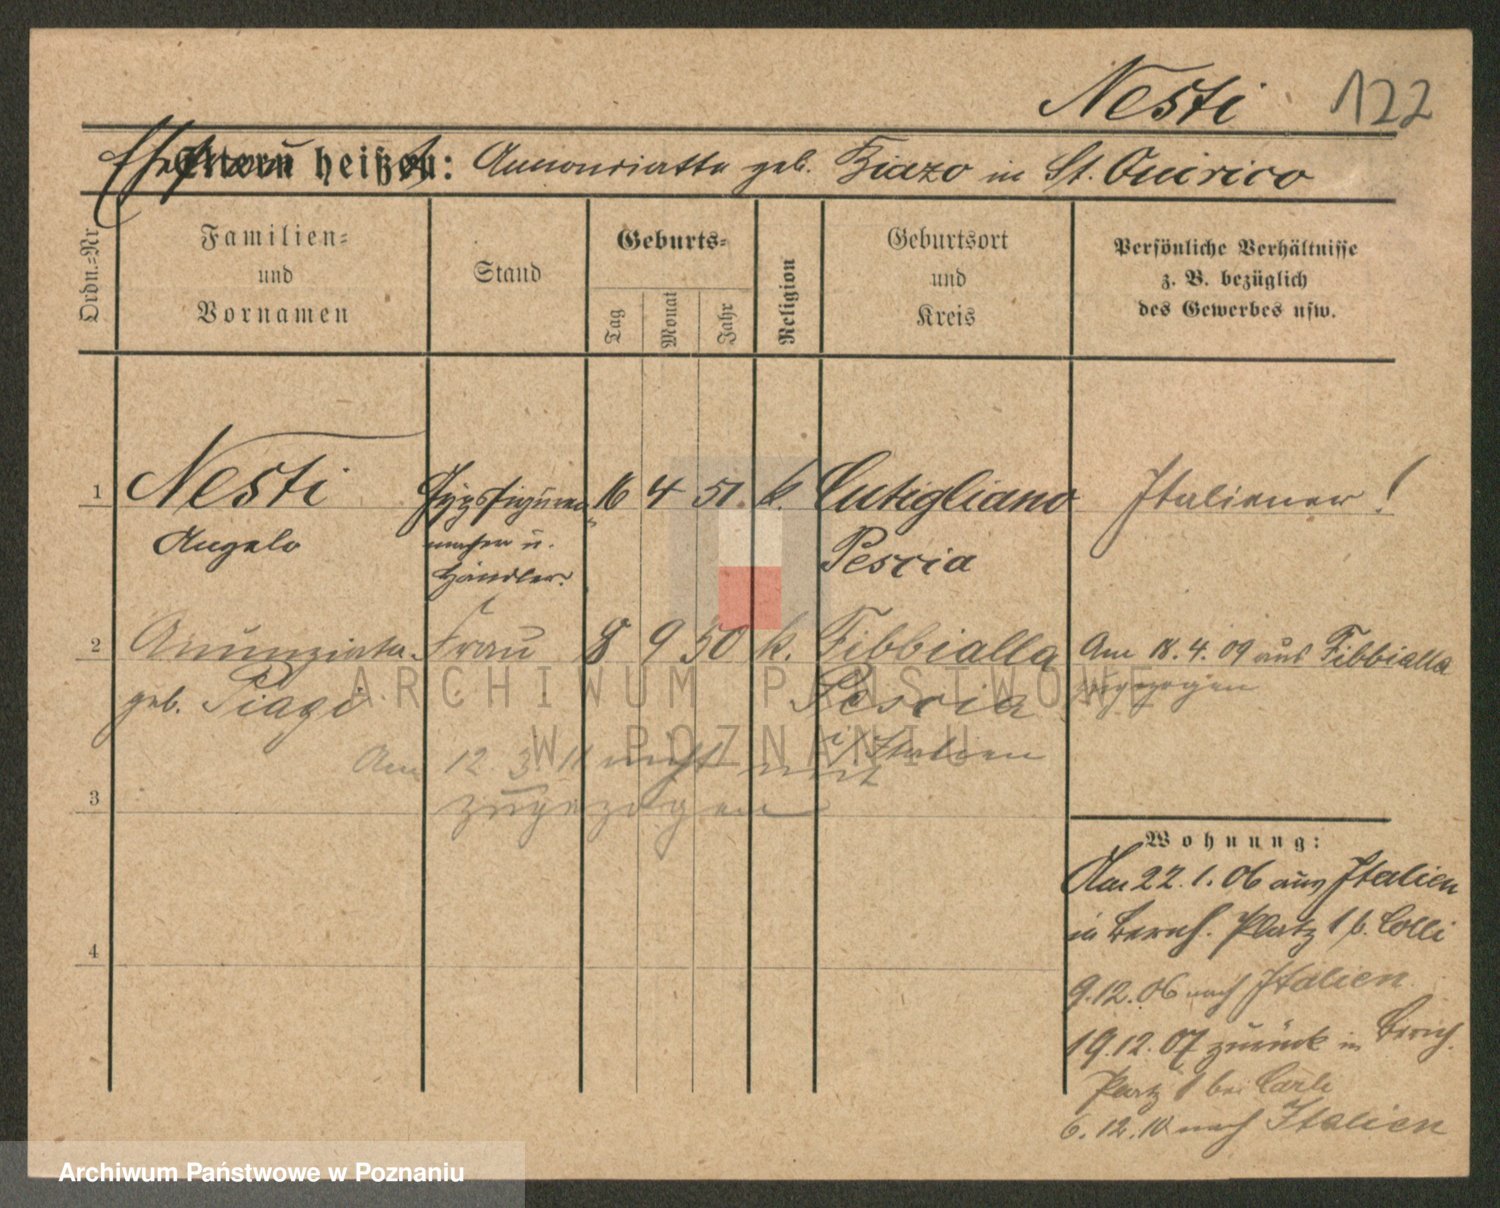 Nesti 122
Ehefrau heißt: Annonciatta geb. Biazo in St. Quirico
Ordn.=Nr
Familien=
und
Vornamen
Stand
Geburts=
Tag
Monat
Jahr
Religion
Geburtsort
und
Kreis
Persönliche Verhältnisse
z. B. bezüglich
des Gewerbes usw.
1 Nesti Gypsfiguren 16 4 51. k. Cutigliano Italiener!
Angelo macher u. Pescia
Händler.
2 Annunziata Frau 8 9 50 k. Fibbialla Am 18.4.09 aus Fibbialla
geb. Piagi Pescia zugezogen
i/Italien
Am 12.3.11 nicht mit
zugezogen
3
4
Wohnung:
Am 22.1.06 aus Italien
in Bernh. Platz 1 b. Colli
9.12.06 nach Italien
19.12.07 zurück in Bernh.
Platz 1 bei Carli
6.12.10 nach Italien
ARCHIWUM PAŃSTWOWE
W POZNANIU
Archiwum Państwowe w Poznaniu